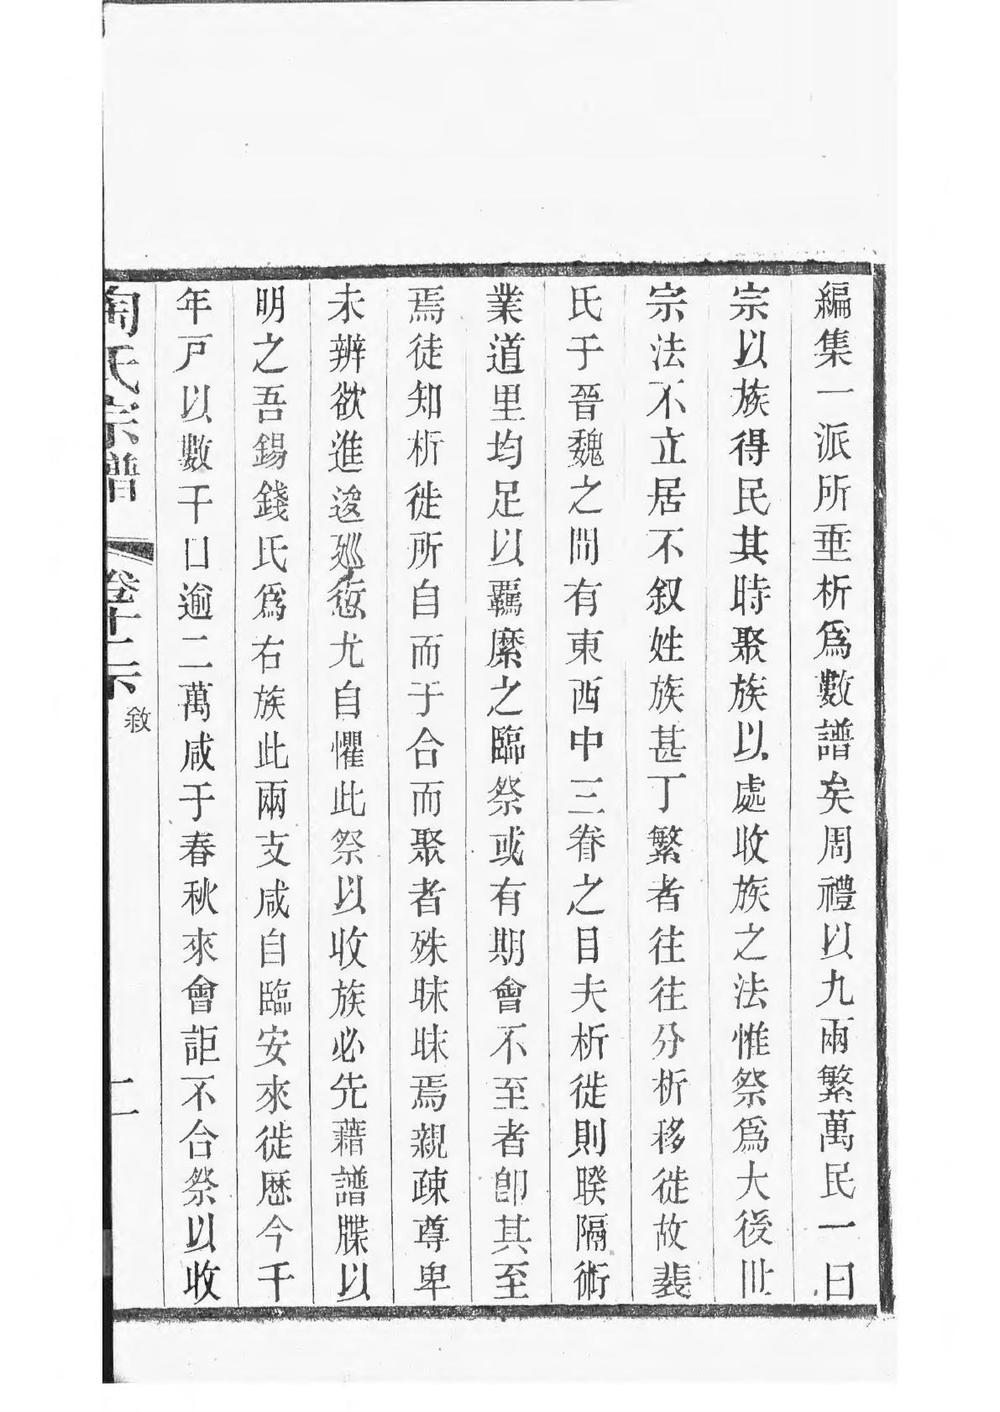 編集一派所垂析爲數譜矣周禮以九兩繁萬民一曰
宗以族得民其時聚族以處收族之法惟祭爲大後世
宗法不立居不叙姓族甚丁繁者往往分析移徙故裴
氏于晉魏之間有東西中三眷之目夫析徙則睽隔術
業道里均足以羈縻之臨祭或有期會不至者卽其至
焉徒知析徙所自而于合而聚者殊昧昧焉親疎尊卑
未辨欲進逡廵愆尤自懼此祭以收族必先藉譜牒以
明之吾錫錢氏爲右族此兩支咸自臨安來徙歷今千
年戸以數千口逾二萬咸于春秋來會詎不合祭以收
陶氏宗譜
卷十一下
敘
二